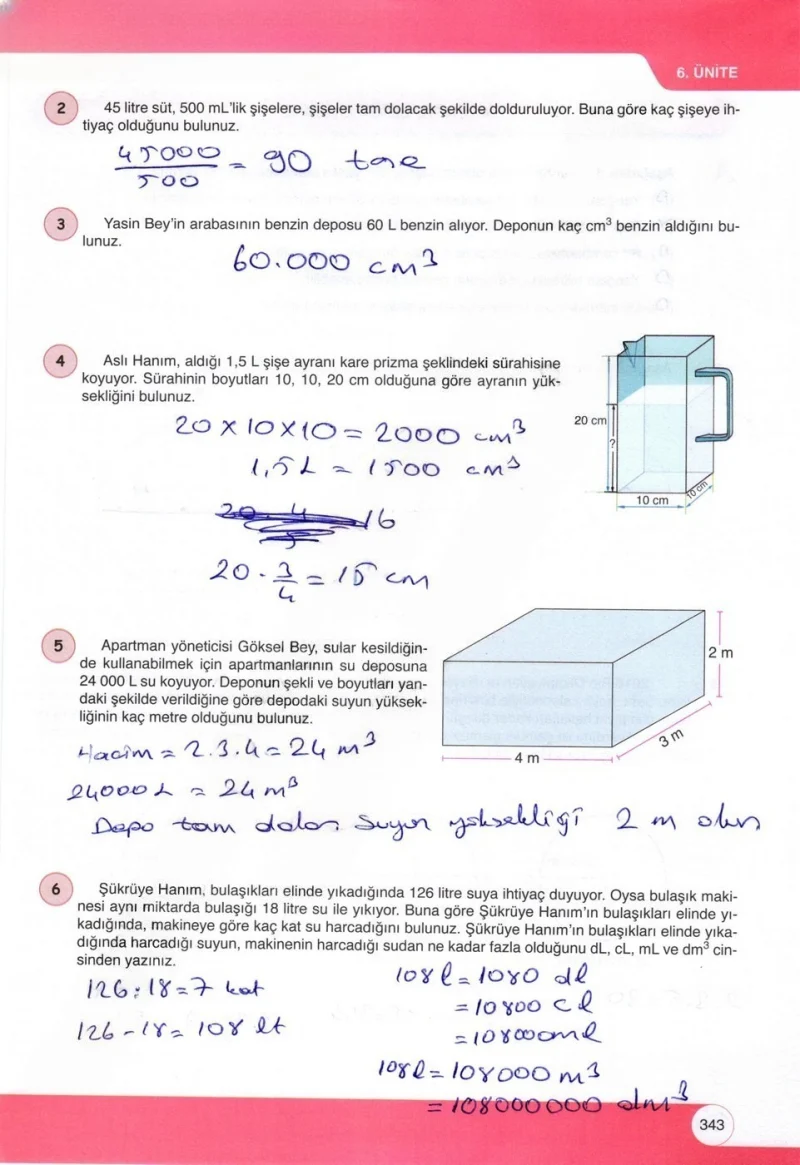 6. ÜNİTE
2 45 litre süt, 500 mL'lik şişelere, şişeler tam dolacak şekilde dolduruluyor. Buna göre kaç şişeye ih-
tiyaç olduğunu bulunuz.
45000
500 = 90 tane
3 Yasin Bey'in arabasının benzin deposu 60 L benzin alıyor. Deponun kaç cm³ benzin aldığını bu-
lunuz.
60.000 cm³
4 Aslı Hanım, aldığı 1,5 L şişe ayranı kare prizma şeklindeki sürahisine
koyuyor. Sürahinin boyutları 10, 10, 20 cm olduğuna göre ayranın yük-
sekliğini bulunuz.
20 x 10 x 10 = 2000 cm³
1,5 L = 1500 cm³
16
20 · 3/4 = 15 cm
20 cm
?
10 cm
10 cm
5 Apartman yöneticisi Göksel Bey, sular kesildiğin-
de kullanabilmek için apartmanlarının su deposuna
24 000 L su koyuyor. Deponun şekli ve boyutları yan-
daki şekilde verildiğine göre depodaki suyun yüksek-
liğinin kaç metre olduğunu bulunuz.
2 m
3 m
4 m
Hacim = 2.3.4 = 24 m³
24000 L = 24 m³
Depo tam dolar. Suyun yüksekliği 2 m olur
6 Şükrüye Hanım, bulaşıkları elinde yıkadığında 126 litre suya ihtiyaç duyuyor. Oysa bulaşık maki-
nesi aynı miktarda bulaşığı 18 litre su ile yıkıyor. Buna göre Şükrüye Hanım'ın bulaşıkları elinde yı-
kadığında, makineye göre kaç kat su harcadığını bulunuz. Şükrüye Hanım'ın bulaşıkları elinde yıka-
dığında harcadığı suyun, makinenin harcadığı sudan ne kadar fazla olduğunu dL, cL, mL ve dm³ cin-
sinden yazınız.
126 : 18 = 7 kat
126 - 18 = 108 lt
108 l = 1080 dl
= 10800 cl
= 108000ml
108l = 108000 m³
= 108000000 dm³
343